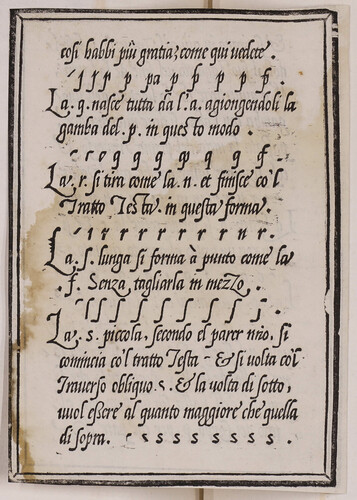 così habbi più gratia, come qui vedete .
ı ɿ ſ ſ p pa p p p p p .
La .q. nasce tutta da l'.a. agiongendoli la
gamba del .p. in questo modo .
c o q q q q q q q .
La .r. si tira come la .n. et finisce co'l
Tratto Testa . in questa forma .
ı r r r r r r r n r .
La .ſ. lunga si forma à punto come la
.f. Senza tagliarla in mezzo .
ſ ſ ſ ſ ſ ſ ſ .
La .s. piccola, secondo el parer nr̃o, si
comincia co'l tratto Testa - & si volta co'l
Traverso obliquo .s. & la volta di sotto,
vuol eßere al quanto maggiore che quella
di sopra. s s s s s s s s .